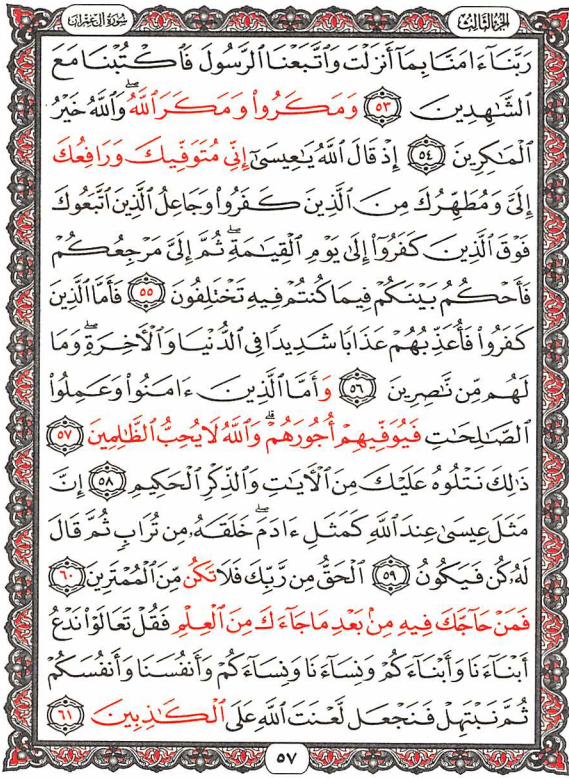 سورة آل عمران
الجزء الثالث
رَبَّنَآ ءَامَنَّا بِمَآ أَنزَلْتَ وَٱتَّبَعْنَا ٱلرَّسُولَ فَٱكْتُبْنَا مَعَ
ٱلشَّٰهِدِينَ ٥٣ وَمَكَرُوا۟ وَمَكَرَ ٱللَّهُ ۖ وَٱللَّهُ خَيْرُ
ٱلْمَٰكِرِينَ ٥٤ إِذْ قَالَ ٱللَّهُ يَٰعِيسَىٰٓ إِنِّى مُتَوَفِّيكَ وَرَافِعُكَ
إِلَىَّ وَمُطَهِّرُكَ مِنَ ٱلَّذِينَ كَفَرُوا۟ وَجَاعِلُ ٱلَّذِينَ ٱتَّبَعُوكَ
فَوْقَ ٱلَّذِينَ كَفَرُوٓا۟ إِلَىٰ يَوْمِ ٱلْقِيَٰمَةِ ۖ ثُمَّ إِلَىَّ مَرْجِعُكُمْ
فَأَحْكُمُ بَيْنَكُمْ فِيمَا كُنتُمْ فِيهِ تَخْتَلِفُونَ ٥٥ فَأَمَّا ٱلَّذِينَ
كَفَرُوا۟ فَأُعَذِّبُهُمْ عَذَابًا شَدِيدًا فِى ٱلدُّنْيَا وَٱلْأَخِرَةِ ۖ وَمَا
لَهُم مِّن نَّٰصِرِينَ ٥٦ وَأَمَّا ٱلَّذِينَ ءَامَنُوا۟ وَعَمِلُوا۟
ٱلصَّٰلِحَٰتِ فَيُوَفِّيهِمْ أُجُورَهُمْ ۗ وَٱللَّهُ لَا يُحِبُّ ٱلظَّٰلِمِينَ ٥٧
ذَٰلِكَ نَتْلُوهُ عَلَيْكَ مِنَ ٱلْأَيَٰتِ وَٱلذِّكْرِ ٱلْحَكِيمِ ٥٨ إِنَّ
مَثَلَ عِيسَىٰ عِندَ ٱللَّهِ كَمَثَلِ ءَادَمَ ۖ خَلَقَهُۥ مِن تُرَابٍ ثُمَّ قَالَ
لَهُۥ كُن فَيَكُونُ ٥٩ ٱلْحَقُّ مِن رَّبِّكَ فَلَا تَكُن مِّنَ ٱلْمُمْتَرِينَ ٦٠
فَمَنْ حَآجَّكَ فِيهِ مِنۢ بَعْدِ مَا جَآءَكَ مِنَ ٱلْعِلْمِ فَقُلْ تَعَالَوْا۟ نَدْعُ
أَبْنَآءَنَا وَأَبْنَآءَكُمْ وَنِسَآءَنَا وَنِسَآءَكُمْ وَأَنفُسَنَا وَأَنفُسَكُمْ
ثُمَّ نَبْتَهِلْ فَنَجْعَل لَّعْنَتَ ٱللَّهِ عَلَى ٱلْكَٰذِبِينَ ٦١
٥٧